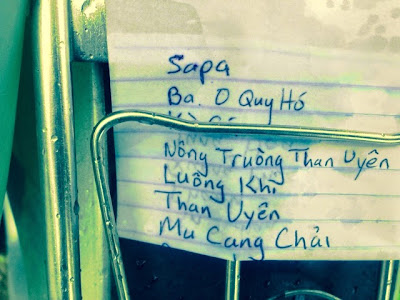 Sapa
Ba. O Quy Hó
Nông Trường Than Uyên
Luồng Khi
Than Uyên
Mu Cang Chải